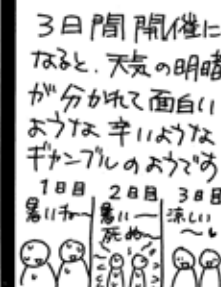 3日間開催に
なると、天気の明暗
が分かれて面白い
ような辛いような
ギャンブルのようです
1日目
暑いねー
2日目
暑いー
死ぬー
3日目
涼しい
〜